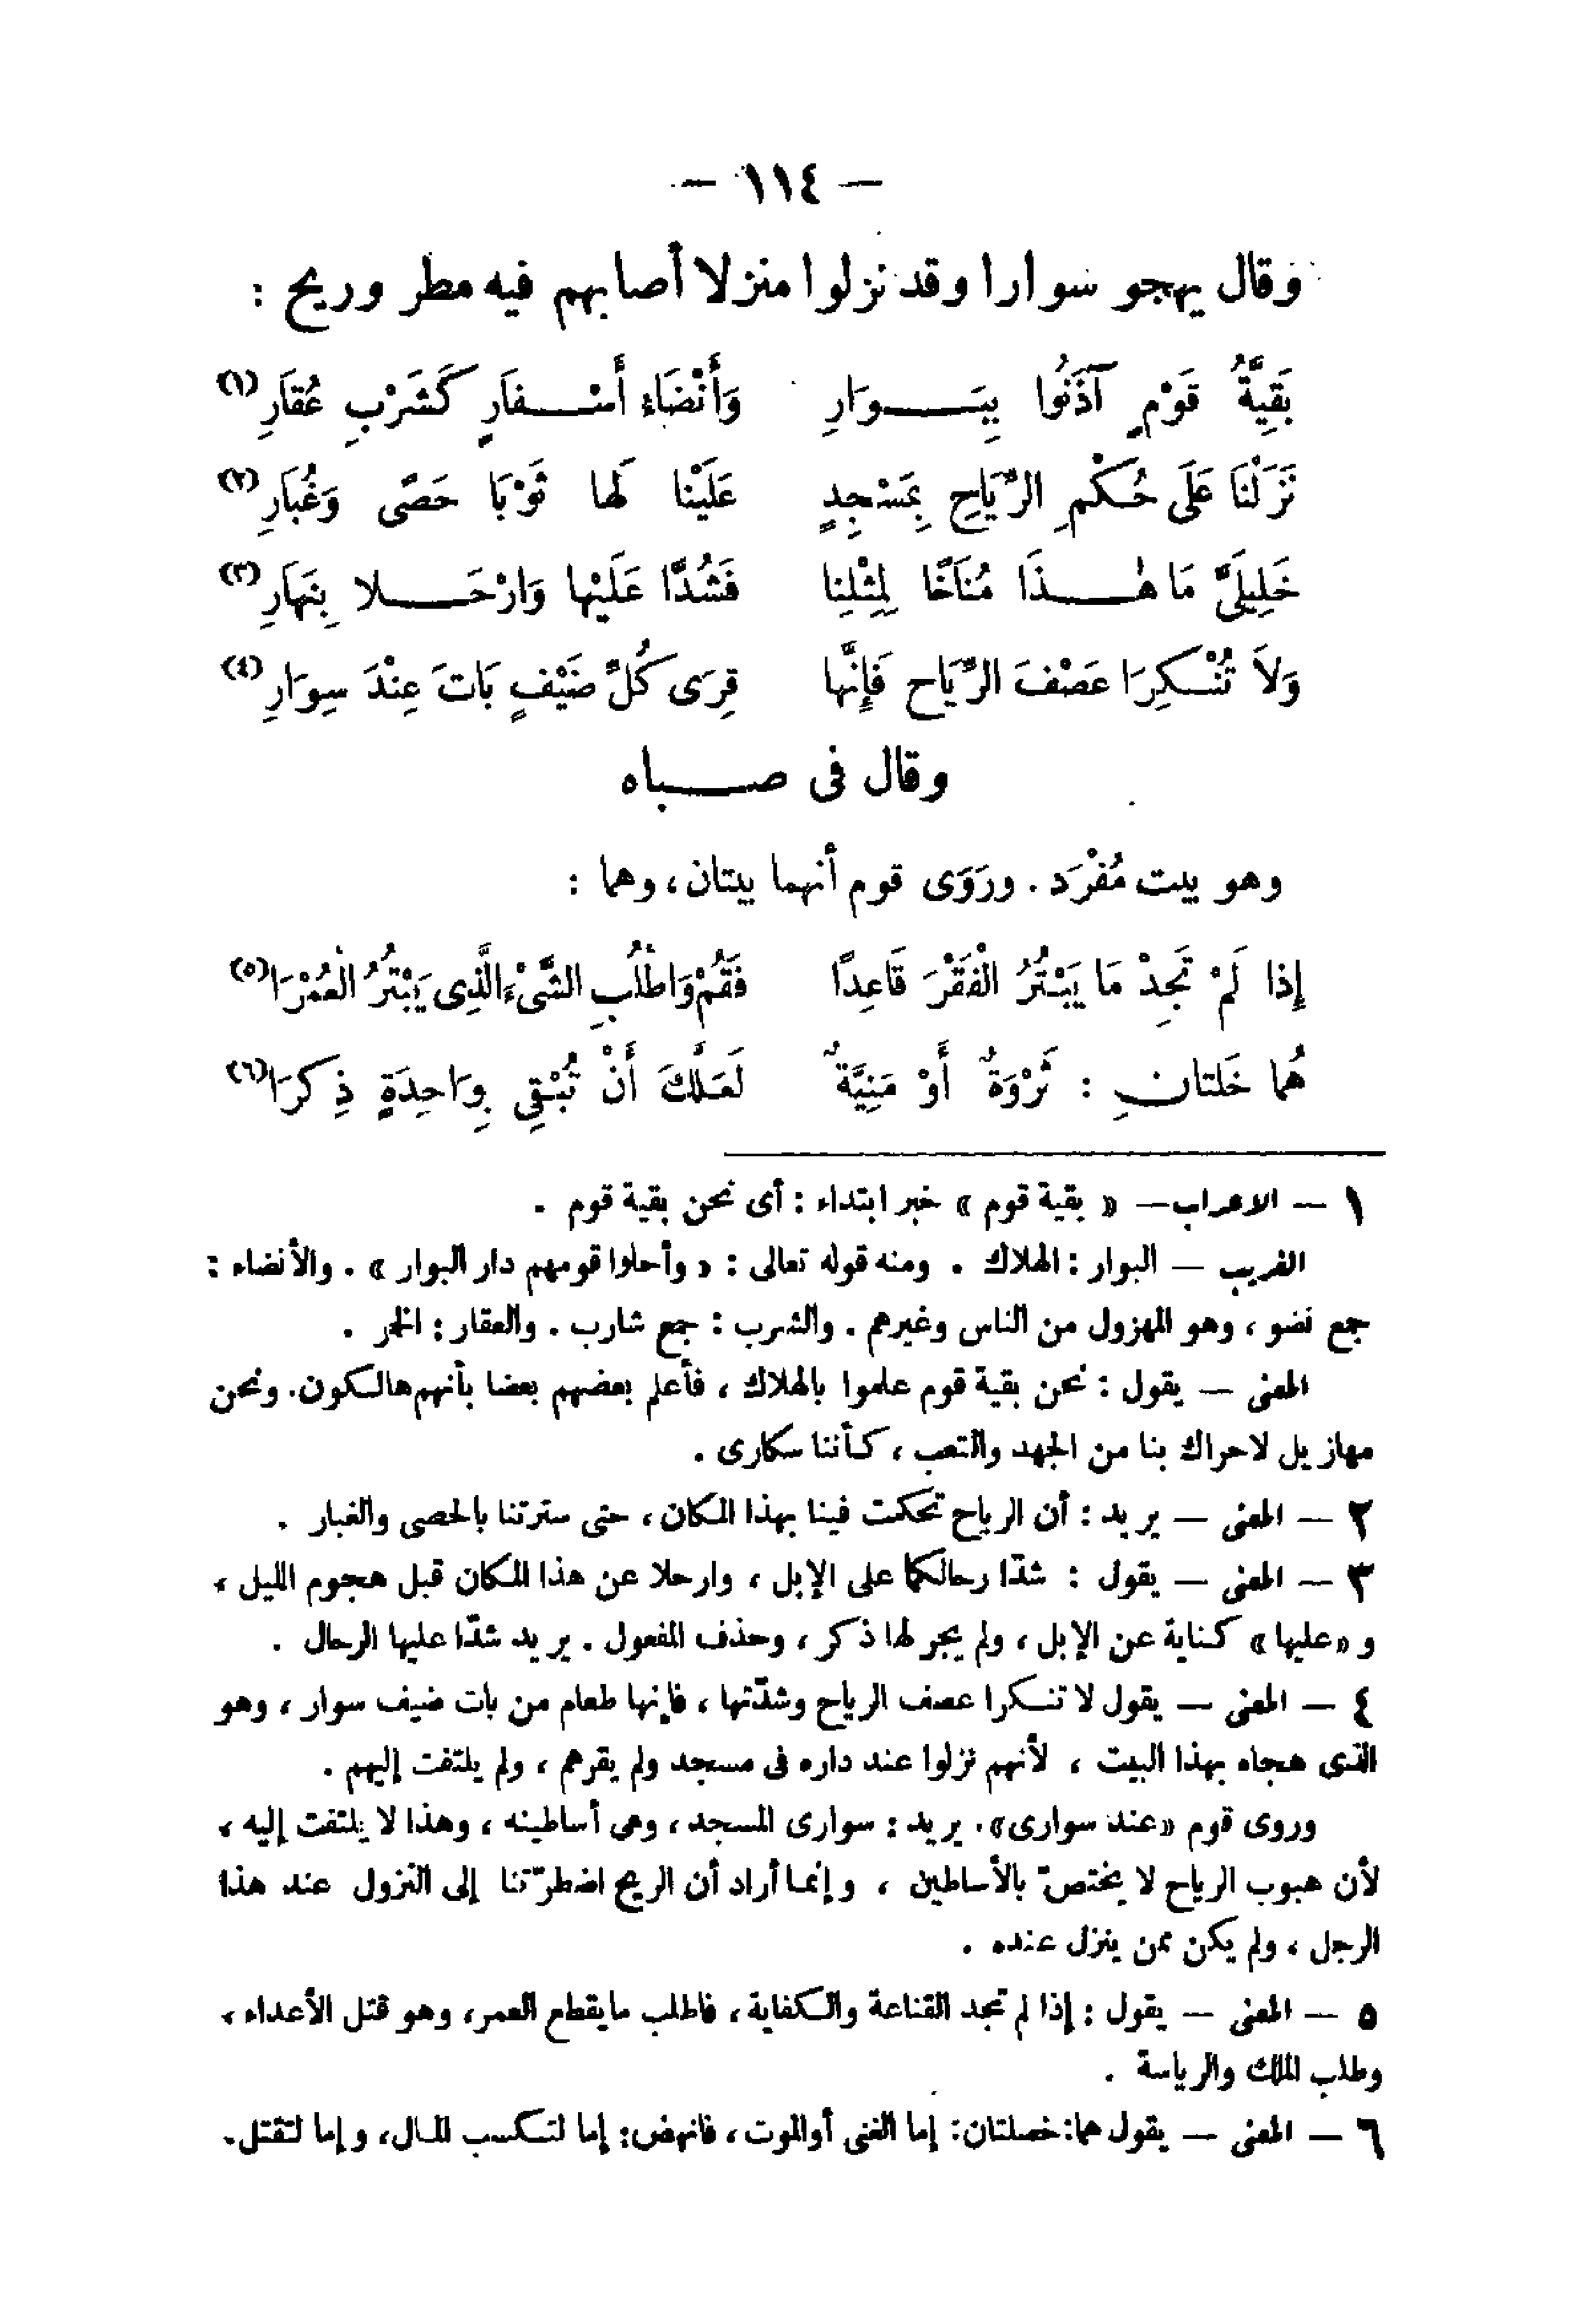 — ١١٤ —
وقال يهجو سوارا وقد نزلوا منزلا أصابهم فيه مطر وريح :
بَقِيَّةُ قَوْمٍ آذَنُوا بِبَوَارِ وَأَنْضَاءِ أَسْفَارٍ كَشَرْبِ عُقَارِ (١)
نَزَلْنَا عَلَى حُكْمِ الرِّيَاحِ بِمَسْجِدٍ عَلَيْنَا لَهَا ثَوْبَا حَصًى وَغُبَارِ (٢)
خَلِيلَيَّ مَا هٰذَا مُنَاخًا لِمِثْلِنَا فَشُدَّا عَلَيْهَا وَارْحَلا بِنَهَارِ (٣)
وَلاَ تُنْكِرَا عَصْفَ الرِّيَاحِ فَإِنَّهَا قِرَى كُلِّ ضَيْفٍ بَاتَ عِنْدَ سِوَارِ (٤)
وقال فى صباه
وهو بيت مُفْرَد . ورَوَى قوم أنهما بيتان ، وهما :
إِذا لَمْ تَجِدْ مَا يَبْتُرُ الْفَقْرَ قَاعِدًا فَقُمْ وَاطْلُبِ الشَّىْءَ الَّذِى يَبْتُرُ الْعُمْرَا (٥)
هُمَا خَلتانِ : ثَرْوَةٌ أَوْ مَنِيَّةٌ لَعَلَّكَ أَنْ تُبْقِى بِوَاحِدَةٍ ذِكرَا (٦)
١ — الاعراب — « بقية قوم » خبر ابتداء : أى نحن بقية قوم .
الغريب — البوار : الهلاك . ومنه قوله تعالى : « وأحلوا قومهم دار البوار » . والأنضاء :
جمع نضو ، وهو المهزول من الناس وغيرهم . والشرب : جمع شارب . والعقار : الخمر .
المعنى — يقول : نحن بقية قوم علموا بالهلاك ، فأعلم بعضهم بعضا بأنهم هالكون . ونحن
مهازيل لاحراك بنا من الجهد والتعب ، كأننا سكارى .
٢ — المعنى — يريد : أن الرياح تحكمت فينا بهذا المكان ، حتى سترتنا بالحصى والغبار .
٣ — المعنى — يقول : شدّا رحالكما على الإبل ، وارحلا عن هذا المكان قبل هجوم الليل ،
و «عليها» كناية عن الإبل ، ولم يجر لها ذكر ، وحذف المفعول . يريد شدّا عليها الرحال .
٤ — المعنى — يقول لا تنكرا عصف الرياح وشدّتها ، فإنها طعام من بات ضيف سوار ، وهو
الذى هجاه بهذا البيت ، لأنهم نزلوا عند داره فى مسجد ولم يقرهم ، ولم يلتفت إليهم .
وروى قوم «عند سوارى» . يريد : سوارى المسجد ، وهى أساطينه ، وهذا لا يلتفت إليه ،
لأن هبوب الرياح لا يختصّ بالأساطين ، وإنما أراد أن الريح اضطرّتنا إلى النزول عند هذا
الرجل ، ولم يكن ممن ينزل عنده .
٥ — المعنى — يقول : إذا لم تجد القناعة والكفاية ، فاطلب ما يقطع العمر ، وهو قتل الأعداء ،
وطلب الملك والرياسة .
٦ — المعنى — يقول هما : خصلتان : إما الغنى أو الموت ، فانهض : إما لتكسب المال ، وإما لتقتل .